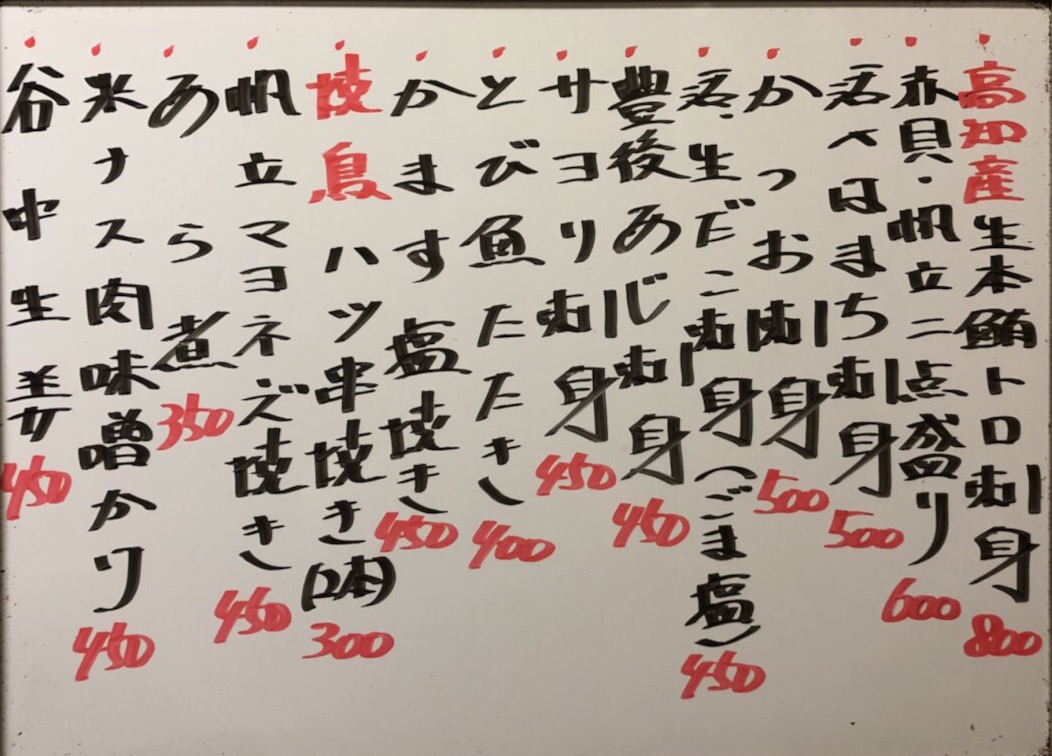 高知産生本鮪トロ刺身 800
赤貝・帆立二点盛り 600
活〆はまち刺身 500
かつお刺身 500
活・生だこ刺身(ごま塩) 450
豊後あじ刺身 450
サヨリ刺身 450
とび魚たたき 400
かます塩焼き 450
焼鳥ハツ串焼き(2本) 300
帆立マヨネーズ焼き 450
あら煮 350
米ナス肉味噌かけ 450
谷中生姜 450